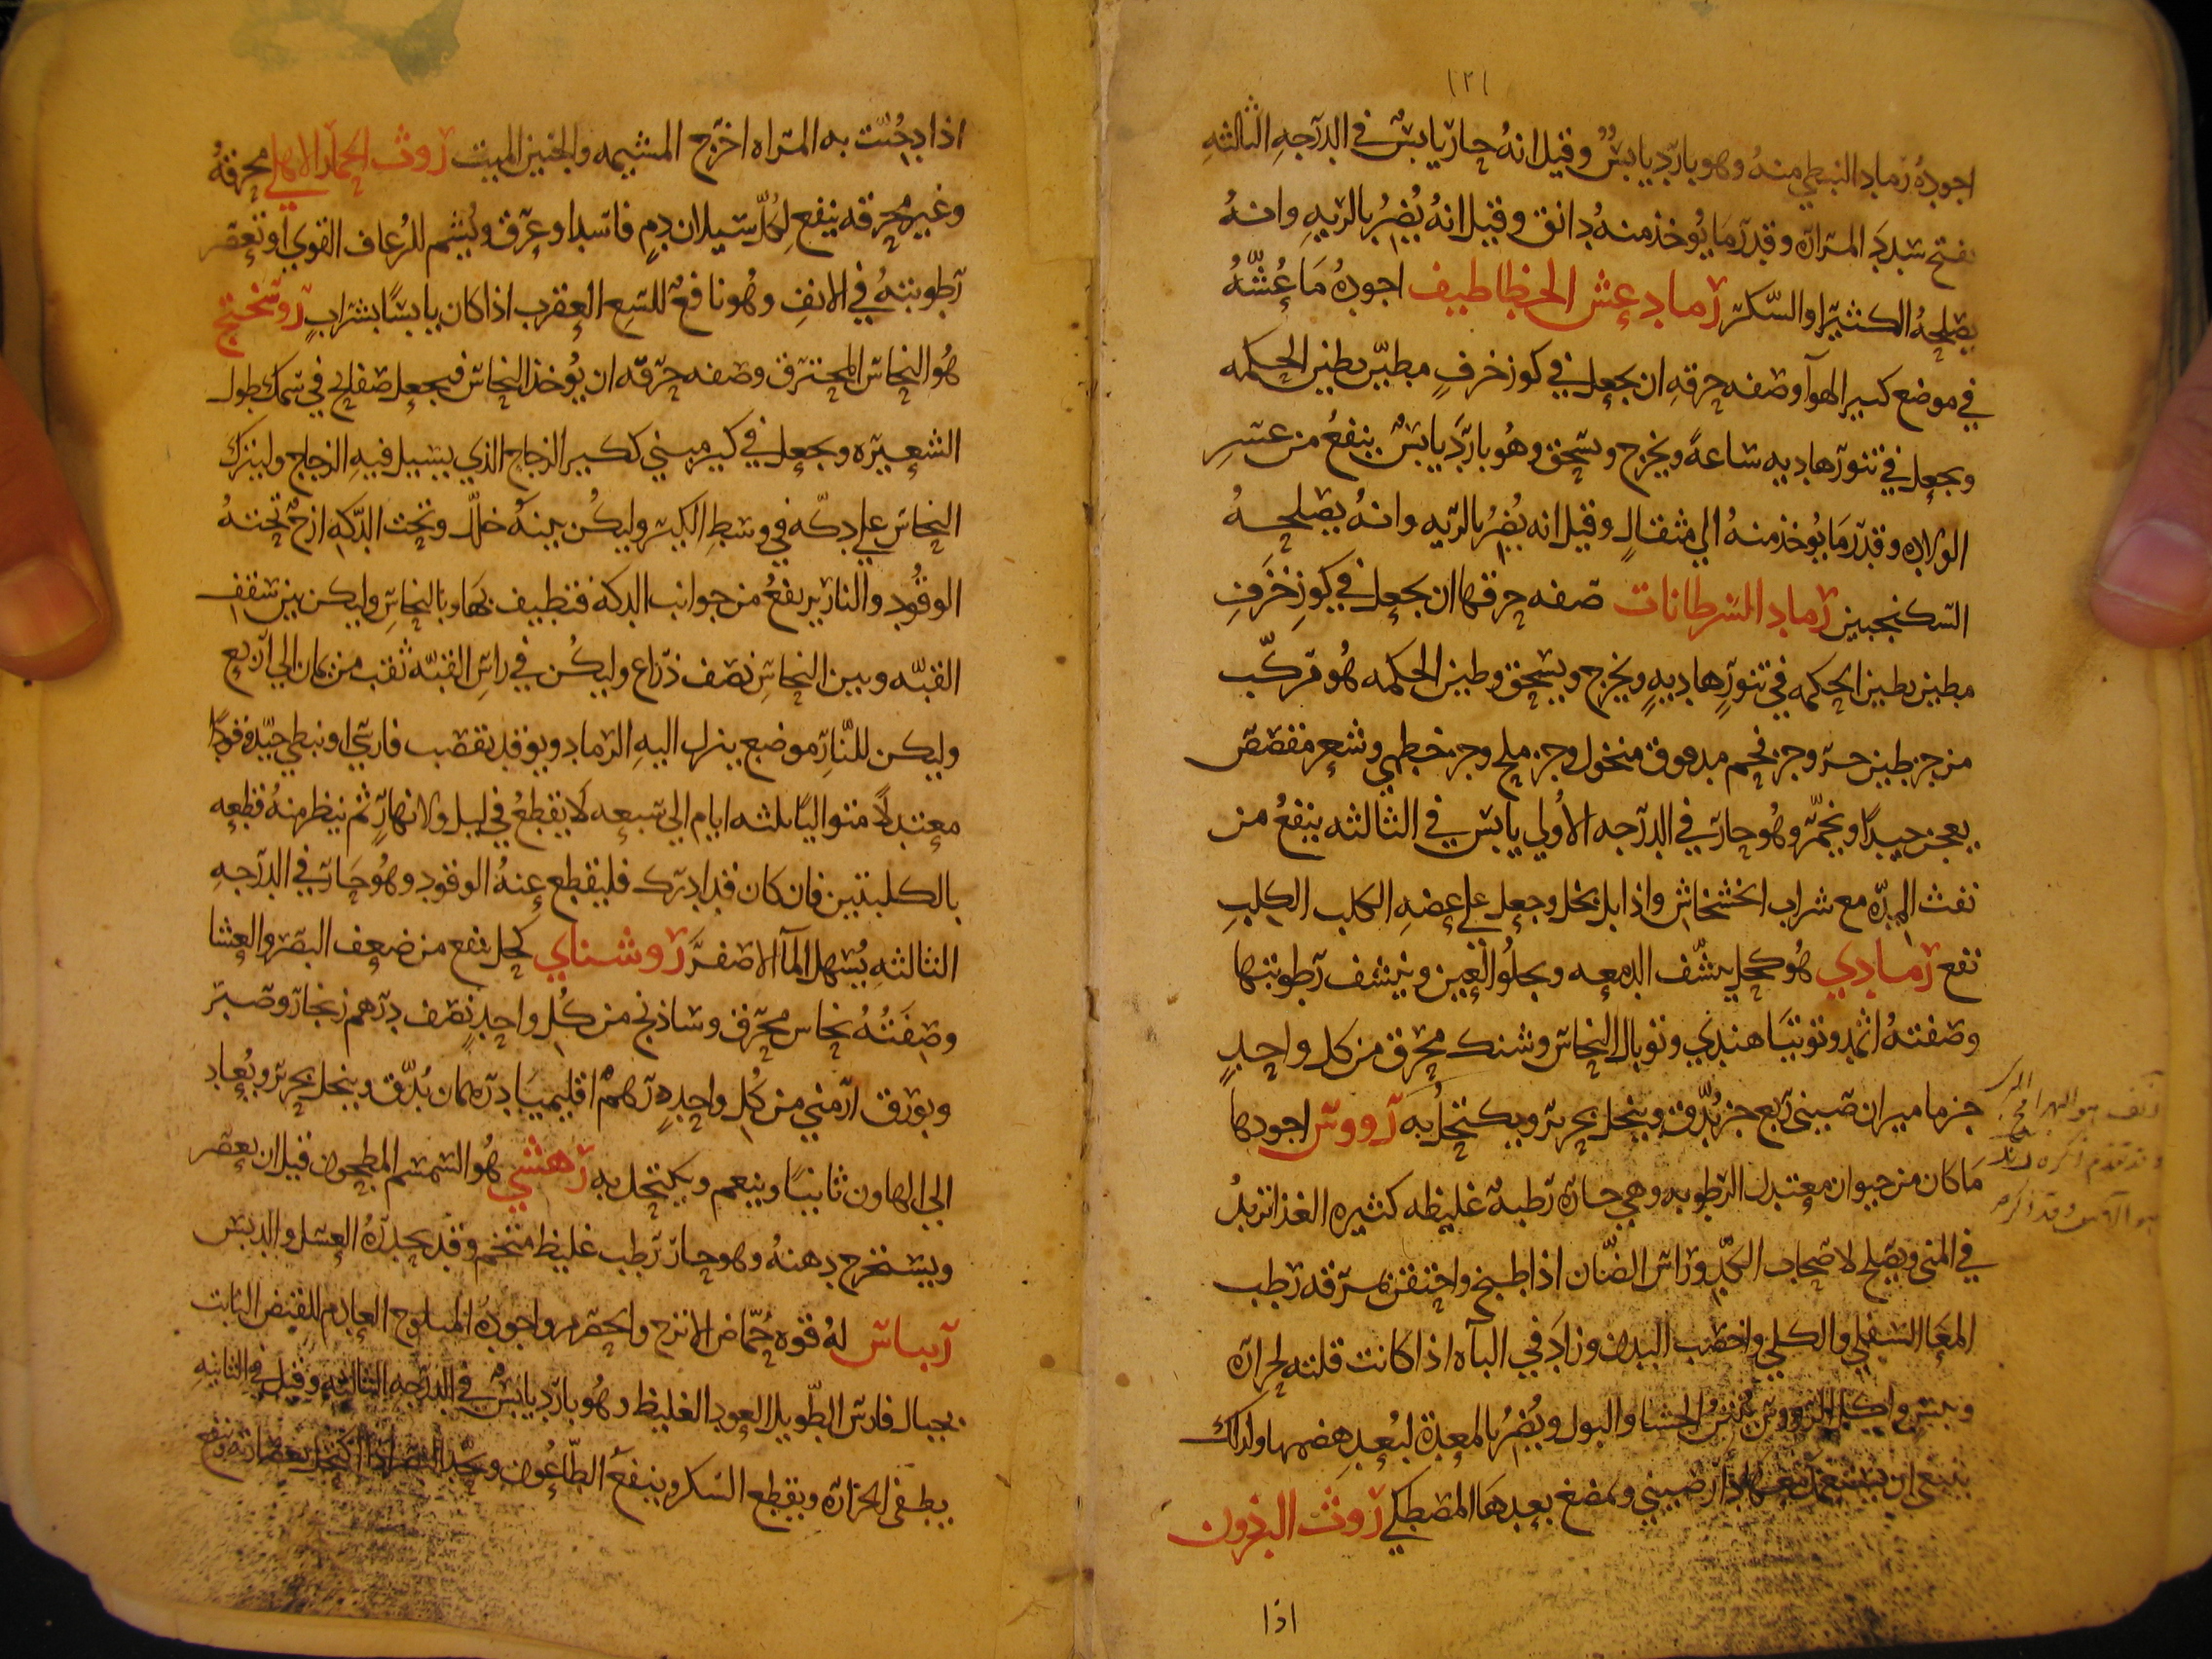 ١٢١
اجوده رماد النبطي منهُ وهو بارد يابسٌ وقيل انهُ حار يابسٌ في الدرجهِ الثالثهِ
يفتح سدد المراره وقدر ما يُوخذ منهُ دانق وقيل انهُ يُضِرُ بالريهِ وانهُ
يصلحهُ الكثيرا والسّكر رماد عش الخطاطيف اجودهُ مَا عُشّهُ
في موضع كبير الهوآ وصفه حرقهِ ان يجعل في كوز خزفٍ مطيّن بطين الحكمه
ويجعل في تنور هاديه ساعهً ويخرج ويسحق وهُو باردٌ يابسٌ ينفعُ من عسرِ
الولاده وقدر مَا يُوخذ منهُ الي مثقالٍ وقيل انه يُضِرُ بالريه وانهُ يصلحهُ
السكنجبين رماد السرطانات صفه حرقها ان يجعل في كوزِ خَزَفِ
مطين بطين الحكمه في تنورٍ هاديهٍ ويخرج ويسحق وطين الحكمه هُو مركّب
من جز طين حر وجز فحم مدقوق منخول وجز ملح وجز خطمي وشعر مقصص
يعجن جيدًا ويخمّر وهُو حار في الدرجه الاُولي يابس في الثالثه ينفعُ من
نفث المِدّه مع شراب الخشخاش واذا بل بخل وجعل علي عضهِ الكلب الكلِبِ
نفع رمادي هُو كحل ينشّف الدمعه ويجلُوا العين وينشف رطوبتها
وصفتهُ اثمد وتوتيَا هندي وتوبال النحاس وشنك محرق من كل واحدٍ
جز ماميران صيني رُبع جز يُدّق وينخل بحرير ويكتحلُ به رووس اجودها
مَا كان من حيوان معتدل الرطوبه وهي حاره رطبهٌ غليظه كثيره الغذا تزيدُ
في المني ويصلح لاصحاب الكَدِّ وراس الضّان اذا طبخ واحتقن بمرقه رطب
المعَا السفلي والكلي واخصب البدن وزادَ في الباه اذا كانت قلته لحراره
ويبس واكل الرووس يُنتنُ الجشا والبول ويُضِرُ بالمعدة لبُعدِ هضمها ولذلك
ينبغي ان يستعمل معها دار صيني ويمضغ بعدهَا المصطكي روث البرذون
اذا
اذا دخنت به المراه اخرج المشيمه والجنين الميت روث الحمار الاهلي محرقهُ
وغير محرقه ينفع لِكُلّ سيلان دمٍ فاسدا وعرق ويُشم للرُعاف القوي او تعصر
رطوبتهُ في الانفِ وهُو نافعٌ للسع العقرب اذا كان يابسًا بشرابٍ روسختج
هُو النحاس المحترق وصفه حرقه ان يُوخذ النحاس فيجعل صفايح في سمك طول
الشعيره ويجعل في كير مبني ككير الزجاج الذي يسيل فيهِ الزجاج وليترك
النحاس علي دكّه في وسطِ الكير وليكُن بينهُ خللٌ وتحت الدّكهِ ازجٌ تحتهُ
الوقُود والنار يرتفعُ من جوانب الدكه فتطيف بهَا وبالنحاسِ وليكن بين سقف
القبّه وبين النحاسِ نصف ذراع وليكُن في راسِ القبّه ثقب من ثمان الي اربع
وليكن للنّارِ موضع ينزل اليهِ الرماد ويوقد بقصب فارسي او نبطي جيّد وقودًا
معتدلاً متواليًا ثلثه ايام الي سبعه لا يقطعُ في ليل ولا نهارٍ ثم ينظر منهُ قطعه
بالكلبتين فان كان قد ادرك فليقطع عنهُ الوقود وهُو حَار في الدرجهِ
الثالثهِ يُسهل المآ الاصفرَ روشناي كحل ينفع من ضعف البصر والعِشا
وصِفَتُهُ نحاس محرق وشاذنج من كُلِ واحدٍ نصف درهم زنجار وصبر
وبورق ارمني من كُلِ واحدٍ درهمٌ اقليميَا درهمان يُدّق وينخل بحرير ويُعاد
الي الهاون ثانيًا وينعم ويكتحل به رهشي هُو السمسم المطحون قبل ان يعصر
ويستخرج دهنهُ وهو حار رطب غليظ متخم وقد يحدرهُ العسل والدبس
ريباس لهُ قوه حُمّاض الاترج والحصرم واجودهُ المسلوج العادم للقبض النابت
بجبال فارس الطّويل العود الغليظ وهُو بارد يابسٌ في الدرجه الثانيه وقيل في الثالثه
يطفي الحراره ويقطع السكر وينفعَ الطّاعُون ويحد البصر اذا اكتحل بعصارته وينفع